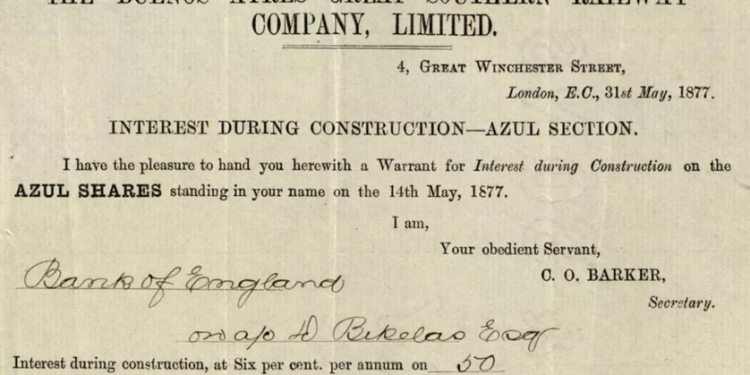 THE BUENOS AYRES GREAT SOUTHERN RAILWAY
COMPANY, LIMITED.
4, GREAT WINCHESTER STREET,
London, E.C., 31st May, 1877.
INTEREST DURING CONSTRUCTION—AZUL SECTION.
I have the pleasure to hand you herewith a Warrant for Interest during Construction on the
AZUL SHARES standing in your name on the 14th May, 1877.
I am,
Your obedient Servant,
C. O. BARKER,
Secretary.
Bank of England
on a/c D Bikelas Esq
Interest during construction, at Six per cent. per annum on 50